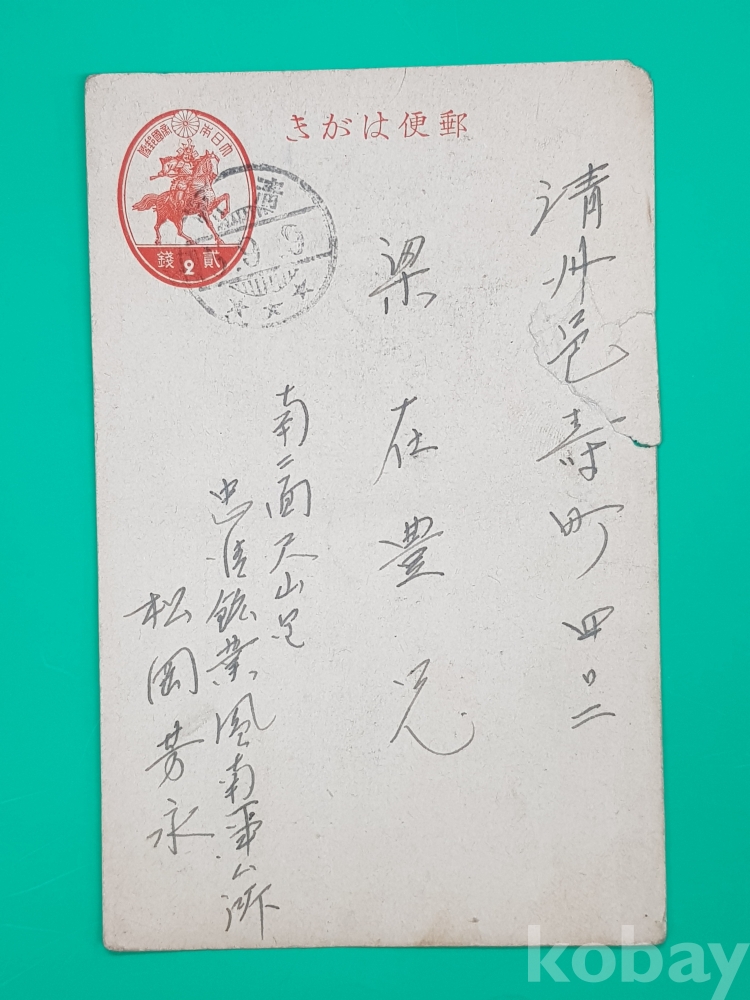 郵便はがき
大日本帝國郵便
貳錢
2
清
9 9
清州邑壽町四〇二
梁在豊兄
南二面尺山里
忠淸鑛業凰南事ム所
松岡芳永
kobay